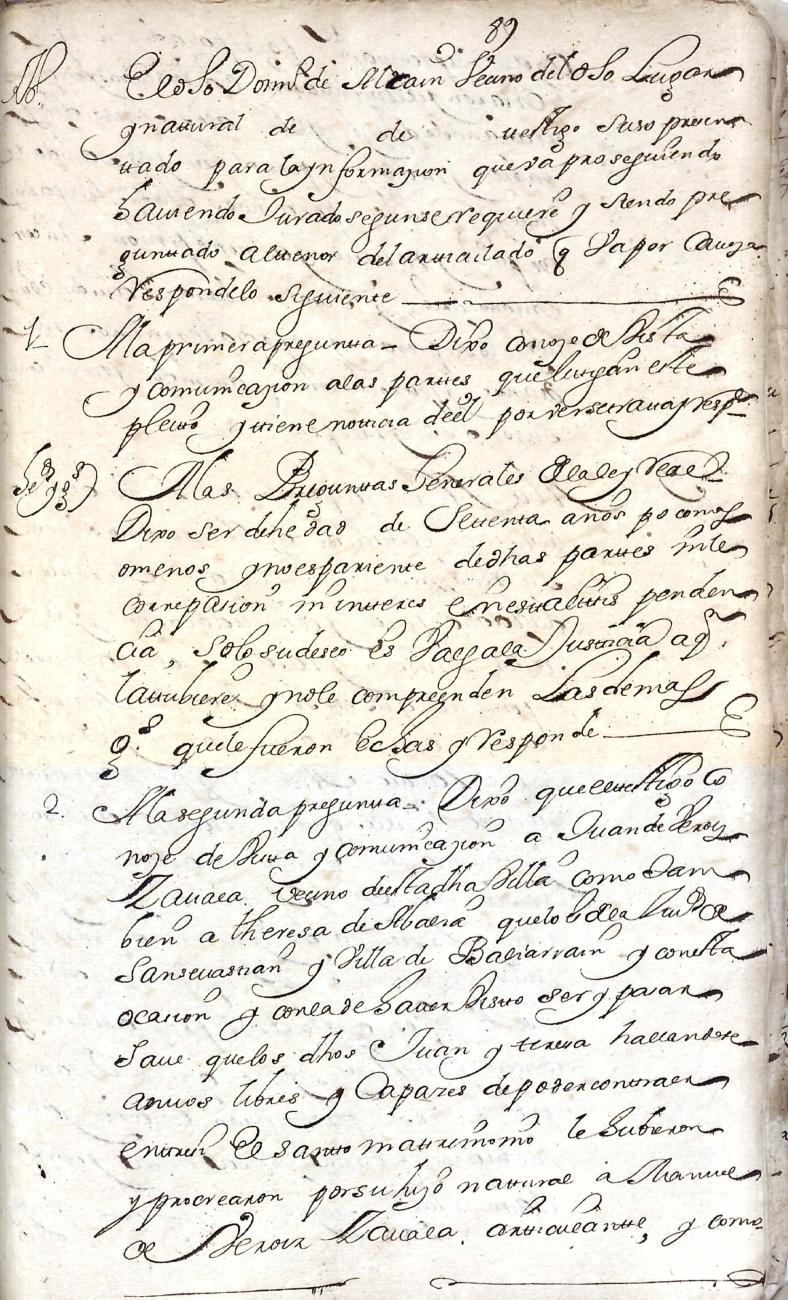 89
El dho Domº de Alcain Vecino del dho Lugar
y natural de de testigo suso presen
tado para la ynformazion que va prosiguiendo
haviendo Jurado segun se requiere y siendo pre
guntado al tenor del articulado q Va por Caveza
Responde lo siguiente
1 A la primera pregunta Dixo conoze de Bista
y comunicazion a las partes que litigan este
pleito y tiene noticia de el por ver se trata y resp.
A las Preguntas Generales de la ley Real
Dixo ser de hedad de Settenta años poco mas
o menos y no es pariente de dhas partes ni le
corre pasion ni interes en esta litis penden
cia, solo su deseo es Valga la Justicia a q
la tubiere y no le compreenden Las demas
g.s que le fueron echas y Responde
2. A la segunda pregunta Dixo que el testigo co
noze de Vista y comunicazion a Juan de Veroiz
Zavala vecino de esta dha Villa como tam
bien a theresa de Abalia que lo es de la Ciud de
San sevastian y Villa de Baliarrain y con esta
ocasion y con la de haver Visto ser y pasar
Save que los dhos Juan y teresa hallandose
amvos libres y Capazes de poder contraer
entre si El santo matrimonio le hubieron
y procrearon por su hijo natural a Manuel
de Veroiz Zavala articulante, y como